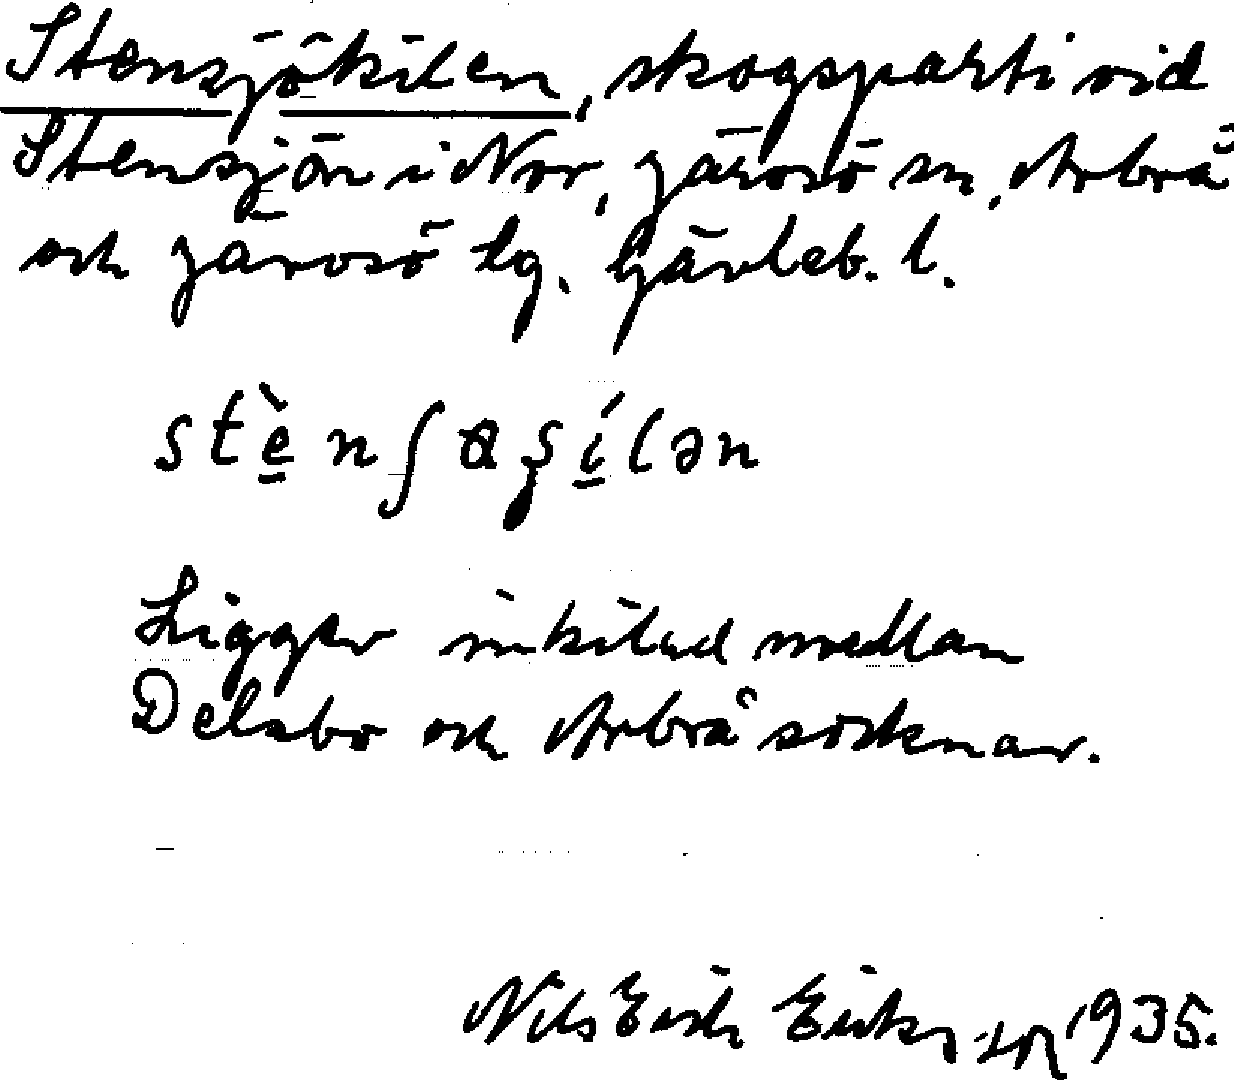 Stensjökilen, skogsparti vid
Stensjön i Nor, Järvsö sn, Arbrå
och Järvsö tg. Gävleb. l.
stè̱nʃɑʂí̱lən
Ligger inkilad mellan
Delsbo och Arbrå socknar.
Nils Erik Eriksson 1935.